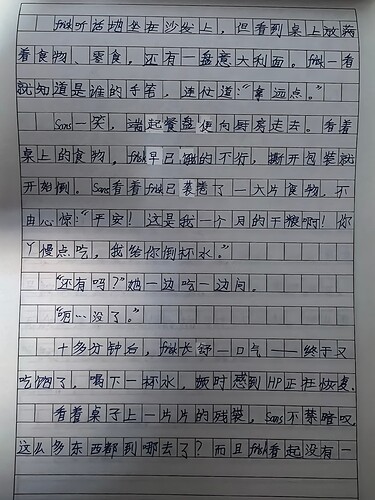 frisk听话地坐在沙发上，但看到桌上放满
着食物、零食，还有一盘意大利面。frisk一看
就知道是谁的手笔，连忙道："拿远点。"
Sans一笑，端起餐盘便向厨房走去。看着
桌上的食物，frisk早已饿的不行，撕开包装就
开始倒。Sans看着frisk已袭卷了一大片食物，不
由心惊："平安！这是我一个月的干粮啊！你
丫慢点吃，我给你倒杯水。"
"还有吗？"她一边吃一边问。
"呃…没了。"
十多分钟后，frisk长舒一口气——终于又
吃饱了，喝下一杯水，顿时感到HP正在恢复。
看着桌子上一片片的残袋，Sans不禁暗叹，
这么多东西都到哪去了？而且frisk看起没有一